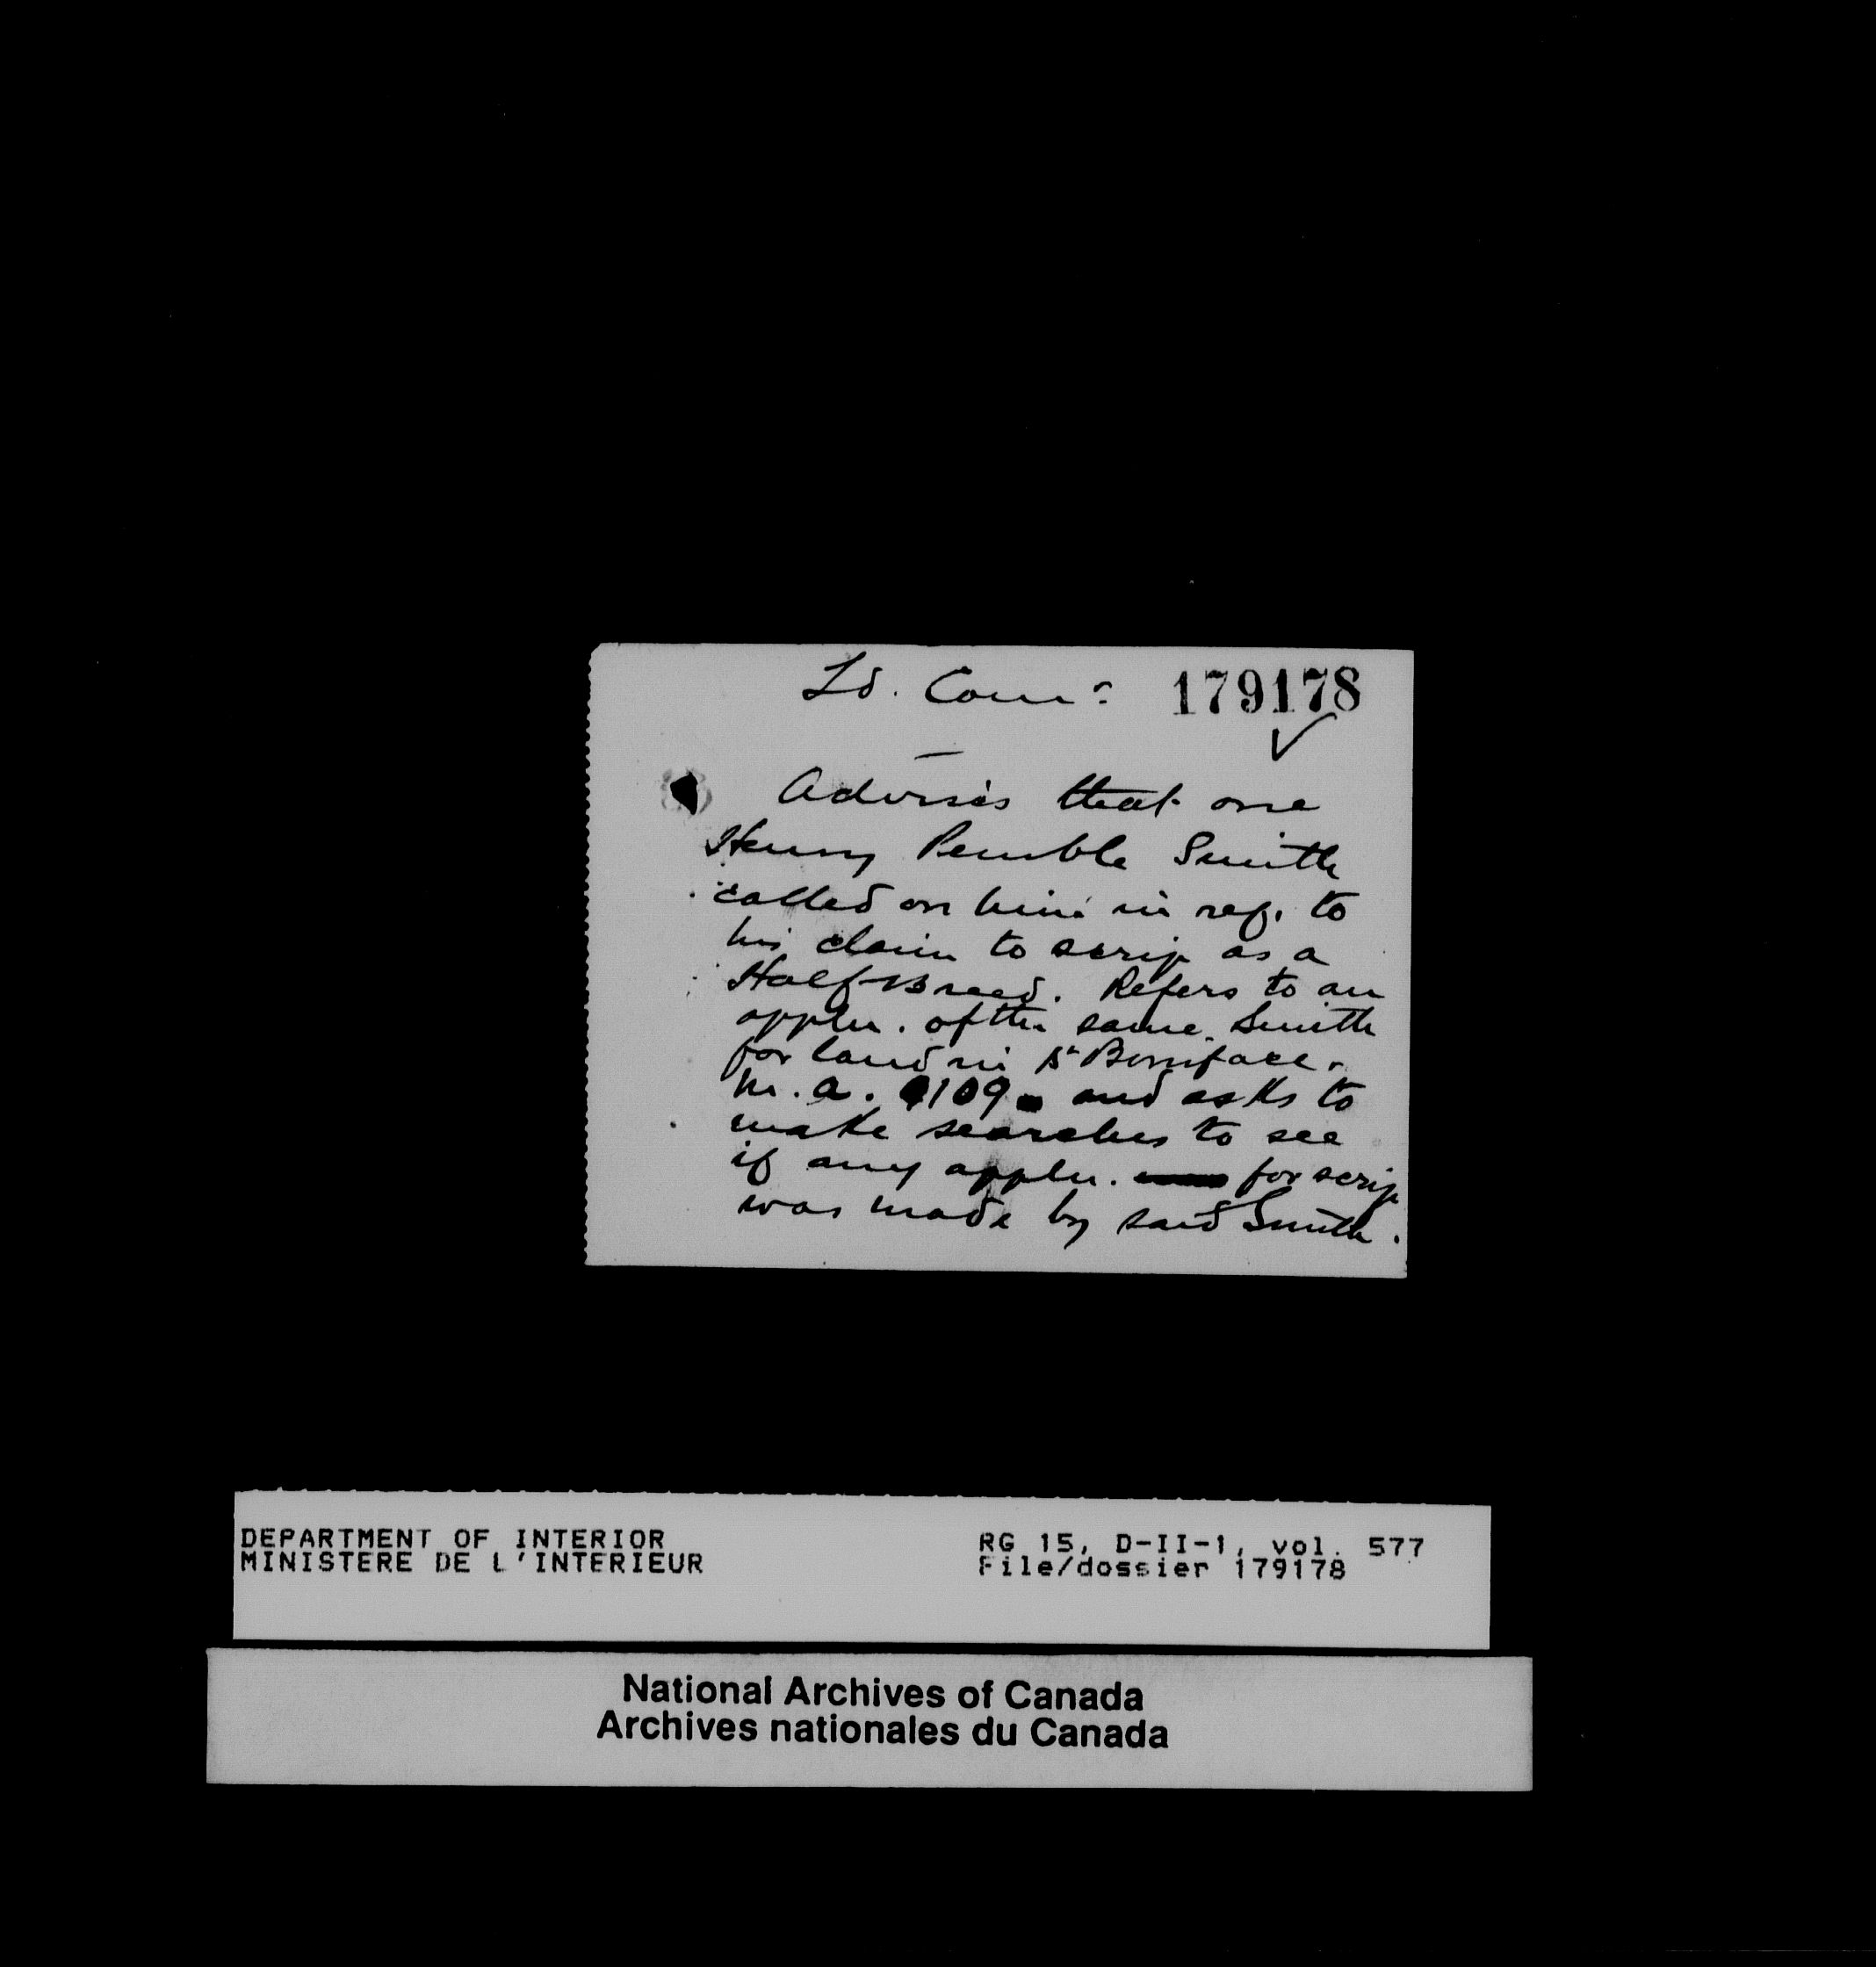 Ld. Comr 179178
Advises that one
Henry Pemble Smith
called on him in ref. to
his claim to scrip as a
Half-Breed. Refers to an
appln. of the same Smith
for land in St Boniface.
M.A. 109 and asks to
make searches to see
if any appln. for scrip
was made by said Smith.
DEPARTMENT OF INTERIOR RG 15, D-II-1, vol. 577
MINISTERE DE L'INTERIEUR File/dossier 179178
National Archives of Canada
Archives nationales du Canada